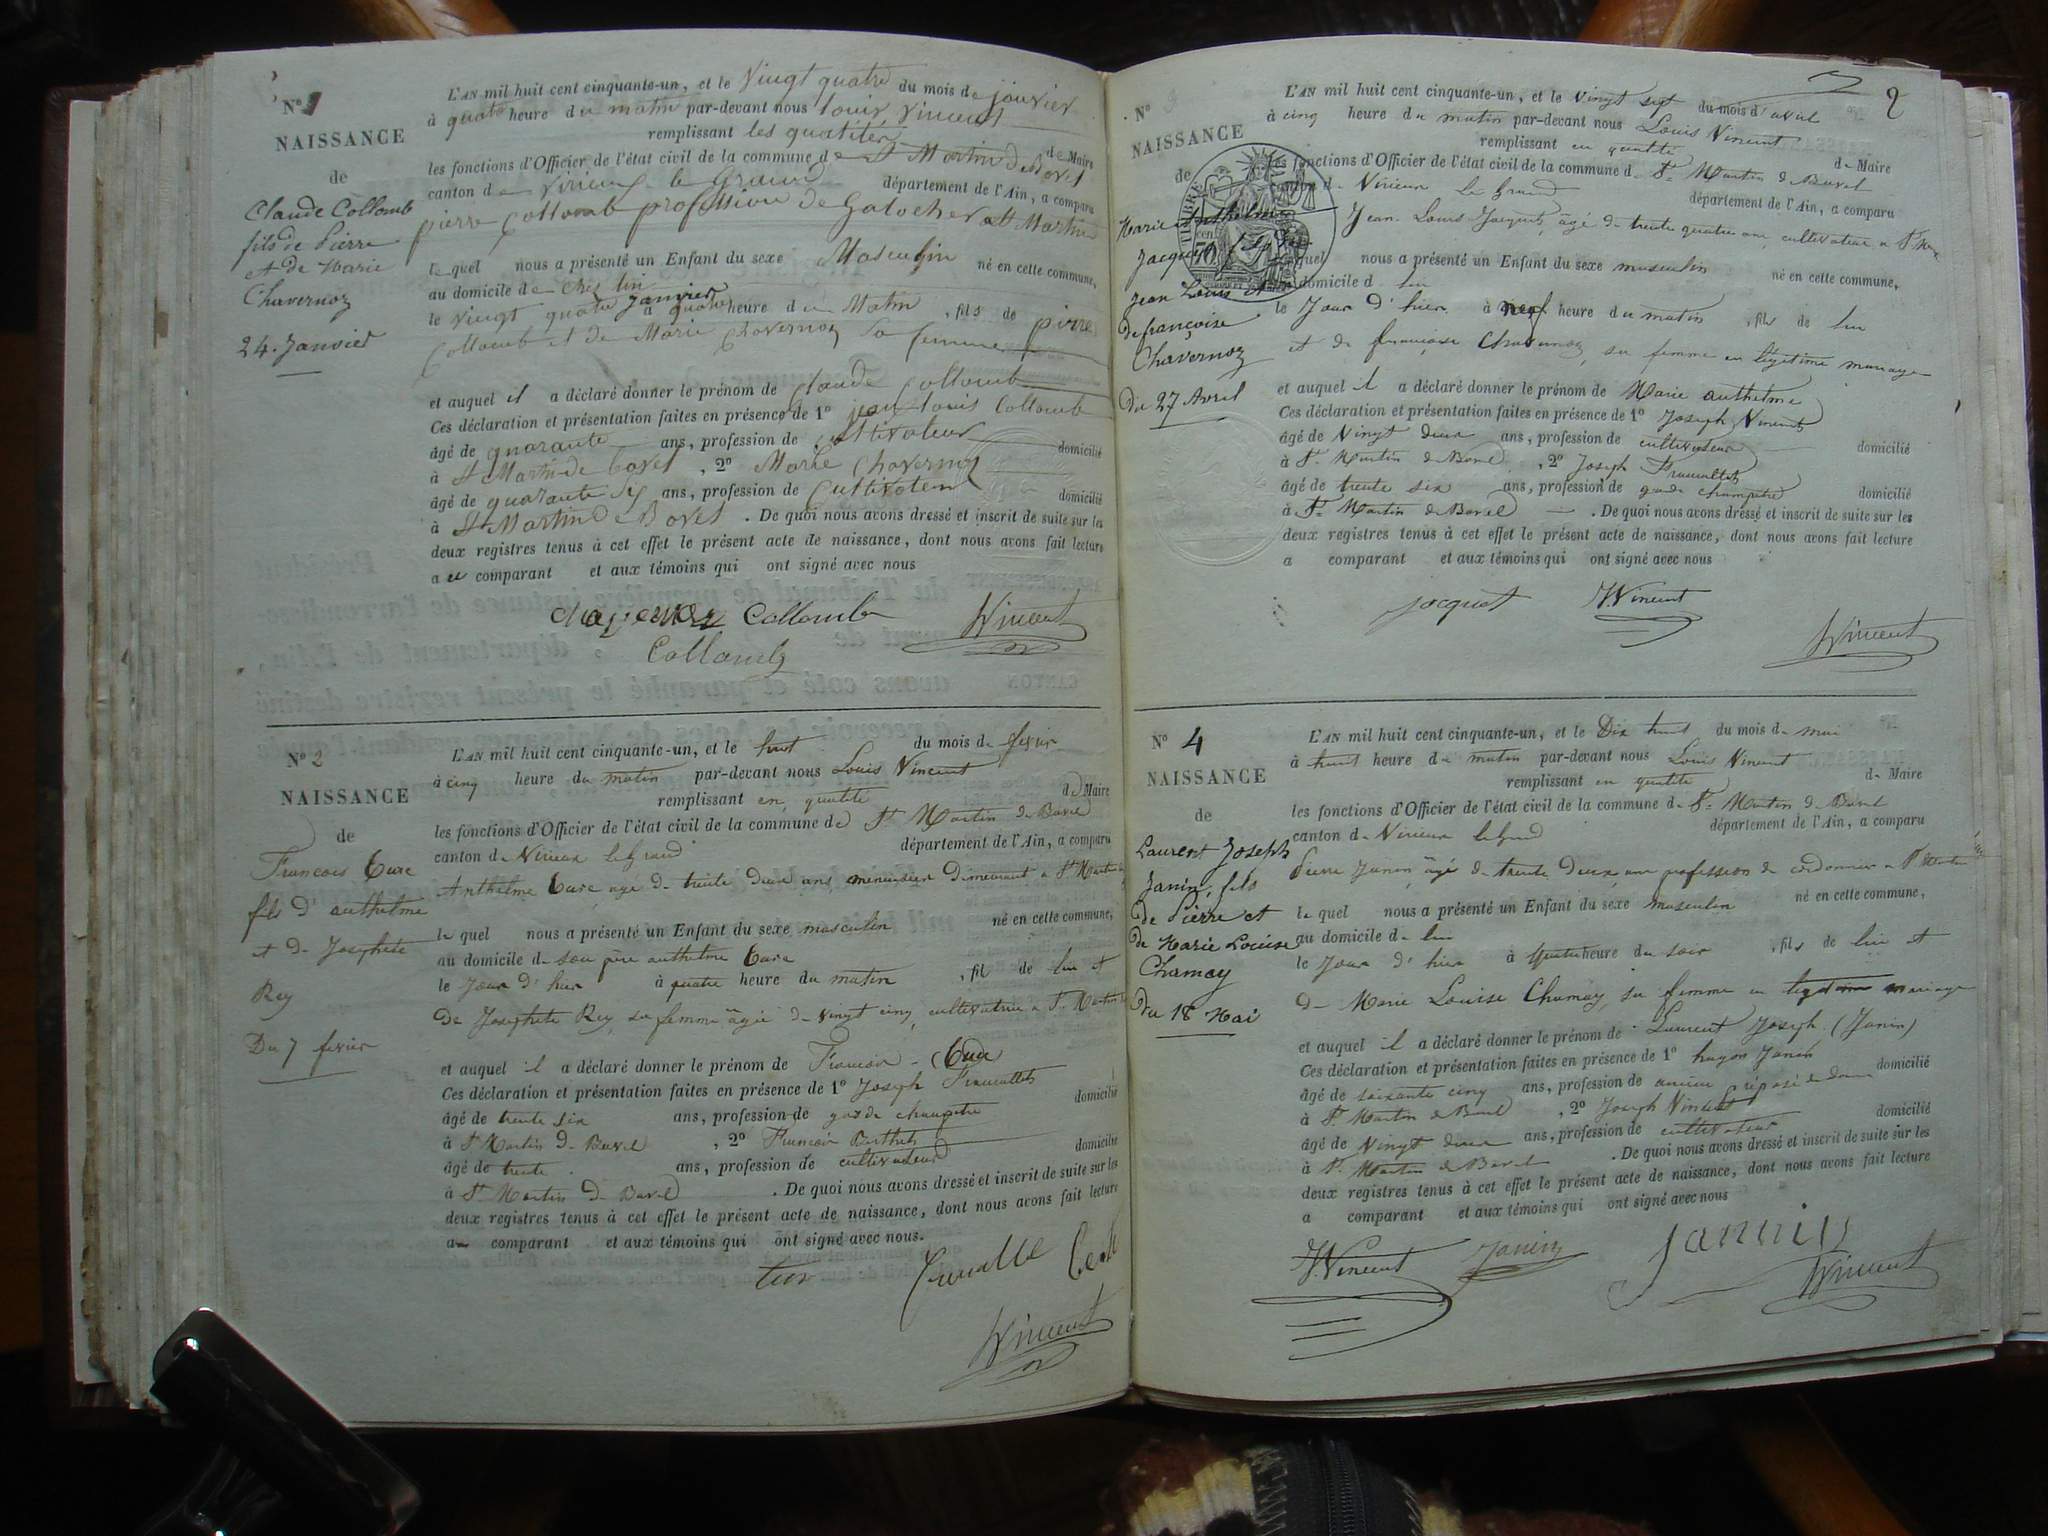 N° 1
NAISSANCE
de
Claude Collomb
fils de Pierre
et de Marie
Chavernoz
24. Janvier
L'AN mil huit cent cinquante-un, et le Vingt quatre du mois de janvier
à quatre heure du matin par-devant nous louis Vincent
remplissant les quatités de Maire
les fonctions d'Officier de l'état civil de la commune de St Martin de Bavel
canton de Virieux le Grand département de l'Ain, a comparu
pierre Collomb profession de Galocher a St Martin
lequel nous a présenté un Enfant du sexe Masculin né en cette commune,
au domicile de chés lui
le vingt quatre janvier à quatre heure du Matin, fils de pierre
Collomb et de Marie Chavernoz sa femme
et auquel il a déclaré donner le prénom de Claude Collomb
Ces déclaration et présentation faites en présence de 1° jean louis Collomb
âgé de quarante ans, profession de Cultivateur domicilié
à St Martin de bavel, 2° Marke Chavernoz
âgé de quarante six ans, profession de Cultivateur domicilié
à St Martin de Bavel. De quoi nous avons dressé et inscrit de suite sur les
deux registres tenus à cet effet le présent acte de naissance, dont nous avons fait lecture
au comparant et aux témoins qui ont signé avec nous
Chavernoz Collomb Vincent
Collomb
N° 2
NAISSANCE
de
Francois Cure
fils d'anthelme
et de Josephete
Rey
Du 7 fevier
L'AN mil huit cent cinquante-un, et le huit du mois de fevier
à cinq heure du matin par-devant nous Louis Vincent
remplissant en quatité de Maire
les fonctions d'Officier de l'état civil de la commune de St Martin de Bavel
canton de Virieux le Grand département de l'Ain, a comparu
Anthelme Cure, agé de trente deux ans menuisier demeurant a St Martin
le quel nous a présenté un Enfant du sexe masculin né en cette commune,
au domicile de son père anthelme Cure
le Jour d'hier à quatre heure du matin, fil de lui et
de Josephete Rey, sa femme âgée de vingt cinq, cultivatrice a St Martin
et auquel il a déclaré donner le prénom de Francois - Cure
Ces déclaration et présentation faites en présence de 1° Joseph
âgé de trente six ans, profession de garde champetre domicilié
à St Martin de Bavel, 2° Francois Berthet
âgé de trente ans, profession de cultivateur domicilié
à St Martin de Bavel. De quoi nous avons dressé et inscrit de suite sur les
deux registres tenus à cet effet le présent acte de naissance, dont nous avons fait lecture
au comparant et aux témoins qui ont signé avec nous.
Vincent
2
N° 3
NAISSANCE
de
Marie Anthelme
Jacquet fils de
Jean Louis et
de françoise
Chavernoz
Du 27 Avril
TIMBRE
L'AN mil huit cent cinquante-un, et le vingt sept du mois d'avril
à cinq heure du matin par-devant nous Louis Vincent
remplissant en quatité de Maire
les fonctions d'Officier de l'état civil de la commune de St Martin de Bavel
canton de Virieux le Grand département de l'Ain, a comparu
Jean Louis Jacquet, âgé de trente quatre ans, cultivateur a St
lequel nous a présenté un Enfant du sexe masculin né en cette commune,
au domicile de lui
le Jour d'hier à neuf heure du matin, fils de lui
et de françoise Chavernoz, sa femme en légitime mariage
et auquel il a déclaré donner le prénom de Marie anthelme
Ces déclaration et présentation faites en présence de 1° Joseph Vincent
âgé de Vingt deux ans, profession de cultivateur domicilié
à St Martin de Bavel, 2° Joseph
âgé de trente six ans, profession de garde champetre domicilié
à St Martin de Bavel. De quoi nous avons dressé et inscrit de suite sur les
deux registres tenus à cet effet le présent acte de naissance, dont nous avons fait lecture
a comparant et aux témoins qui ont signé avec nous
Jacquet J. Vincent
Vincent
N° 4
NAISSANCE
de
Laurent Joseph
Janin, fils
de Pierre et
de Marie Louise
Chamay
Du 18 Mai
L'AN mil huit cent cinquante-un, et le Dix huit du mois de mai
à huit heure du matin par-devant nous Louis Vincent
remplissant en quatité de Maire
les fonctions d'Officier de l'état civil de la commune de St Martin de Bavel
canton de Virieux le Grand département de l'Ain, a comparu
Pierre Janin, âgé de trente deux ans profession de cordonnier a St Martin
le quel nous a présenté un Enfant du sexe masculin né en cette commune,
au domicile de lui
le Jour d'hier à quatre heure du soir, fils de lui et
de Marie Louise Chamay, sa femme en legitime mariage
et auquel il a déclaré donner le prénom de Laurent Joseph (Janin)
Ces déclaration et présentation faites en présence de 1° Janin
âgé de soixante cinq ans, profession de ancien domicilié
à St Martin de Bavel, 2° Joseph Vincent
âgé de Vingt deux ans, profession de cultivateur domicilié
à St Martin de Bavel. De quoi nous avons dressé et inscrit de suite sur les
deux registres tenus à cet effet le présent acte de naissance, dont nous avons fait lecture
a comparant et aux témoins qui ont signé avec nous
J. Vincent Janin Jannin
Vincent